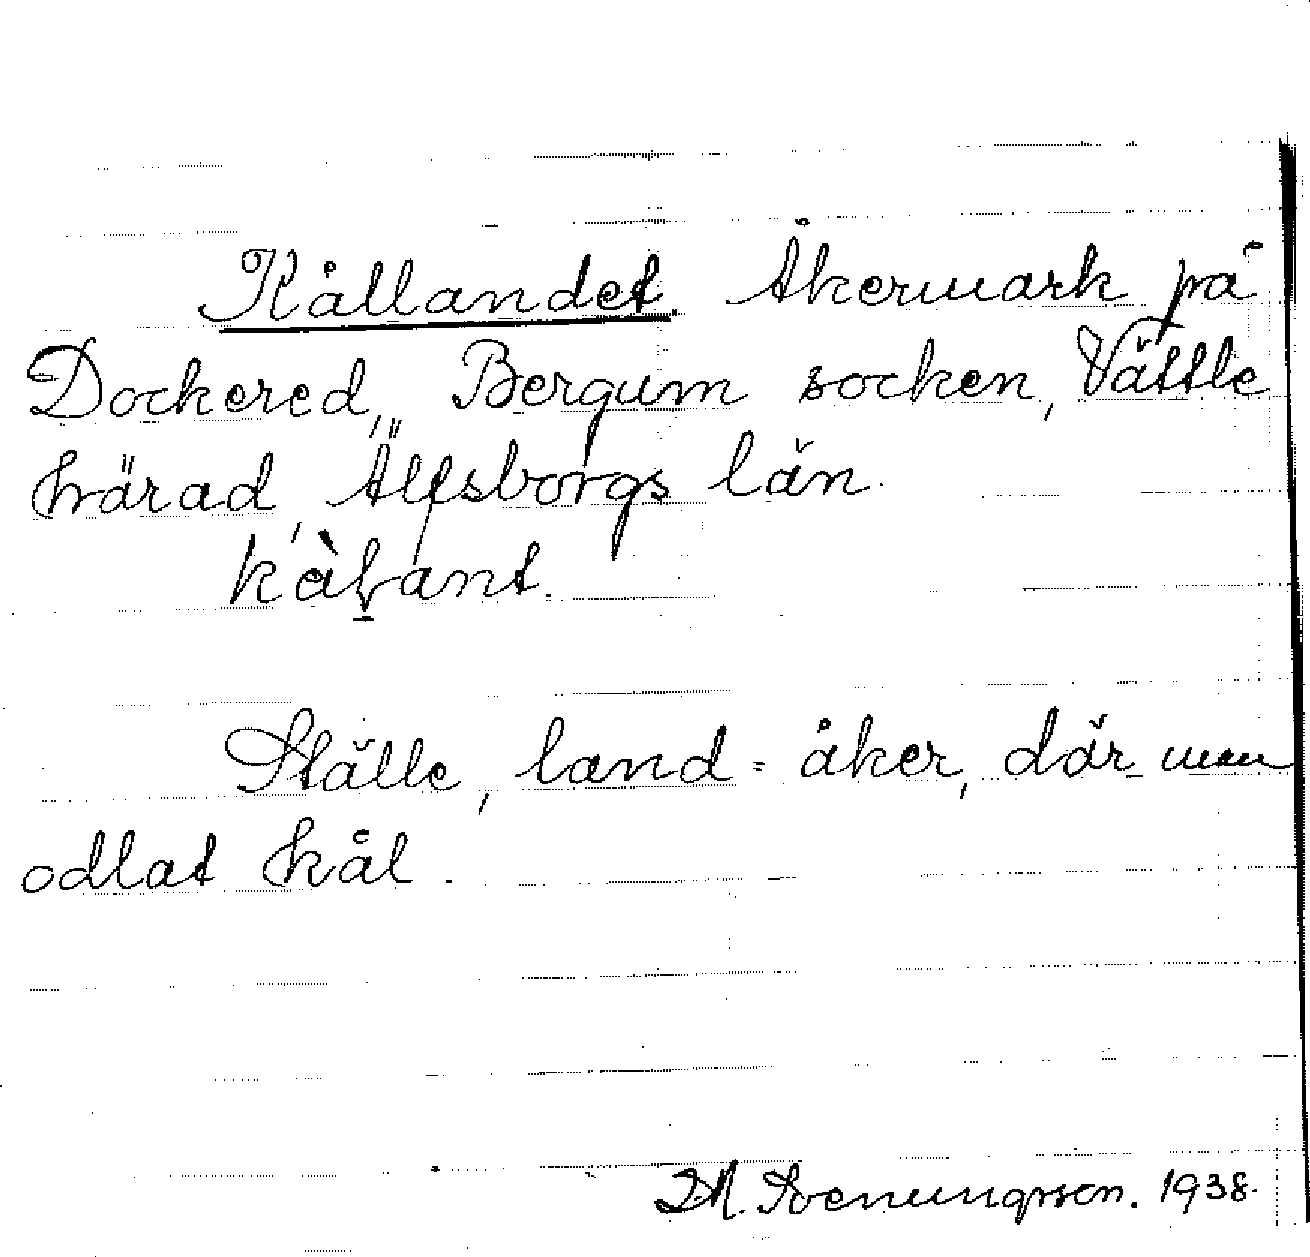 Kållandet. Åkermark på
Dockered, Bergum socken, Vättle
härad, Älfsborgs län.
Ställe, land = åker, där man
odlat kål.
M. Svenungsson. 1938.